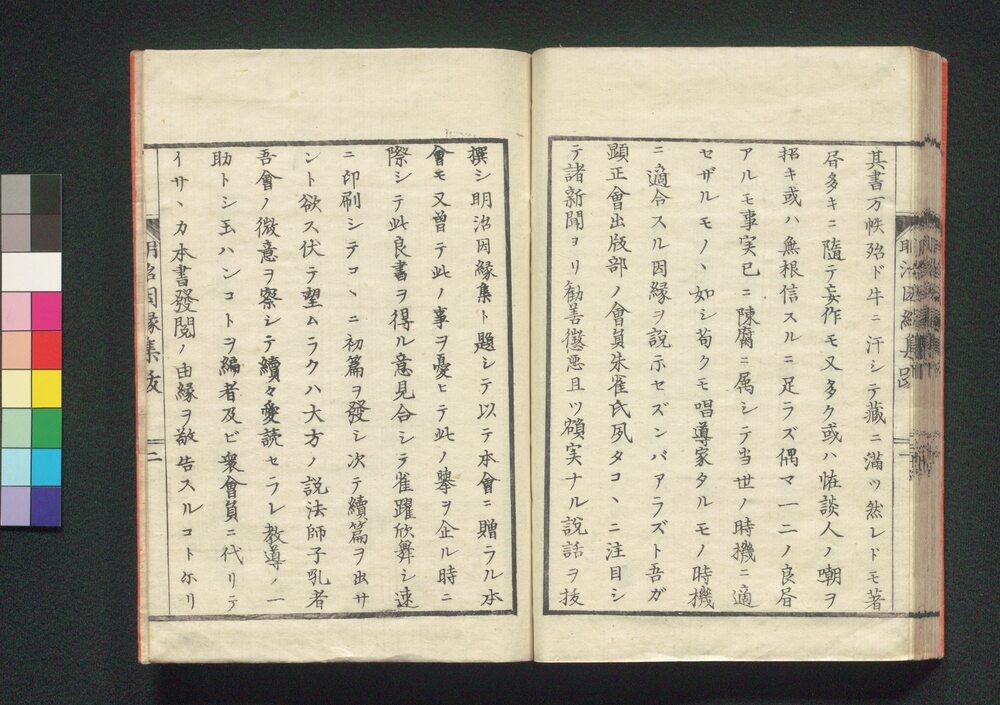 其書万帙殆ド牛ニ汗シテ藏ニ滿ツ然レドモ著
昏多キニ隨テ妄作モ又多ク或ハ恠談人ノ嘲ヲ
招キ或ハ無根信スルニ足ラズ偶マ一二ノ良昏
アルモ事実已ニ陳腐ニ属シテ当世ノ時機ニ適
セザルモノヽ如シ苟クモ唱導家タルモノ時機
ニ適合スル因縁ヲ説示セズンバアラズト吾ガ
顕正會出版部ノ會員朱雀氏夙タコヽニ注目シ
テ諸新聞ヨリ勧善懲悪且ツ碩実ナル説話ヲ抜
撰シ明治因縁集ト題シテ以テ本會ニ贈ラル本
會モ又曽テ此ノ事ヲ憂ヒテ此ノ擧ヲ企ル時ニ
際シテ此良書ヲ得ル意見合シテ雀躍欣舞シ速
ニ印刷シテコヽニ初篇ヲ發シ次テ續篇ヲ出サ
ント欲ス伏テ望ムラクハ大方ノ説法師子乳者
吾會ノ微意ヲ察シテ續々愛読セラレ教導ノ一
助トシ玉ハンコトヲ編者及ビ衆會員ニ代リテ
イサヽカ本書發閲ノ由縁ヲ敬告スルコト尓リ
明治因縁集
二